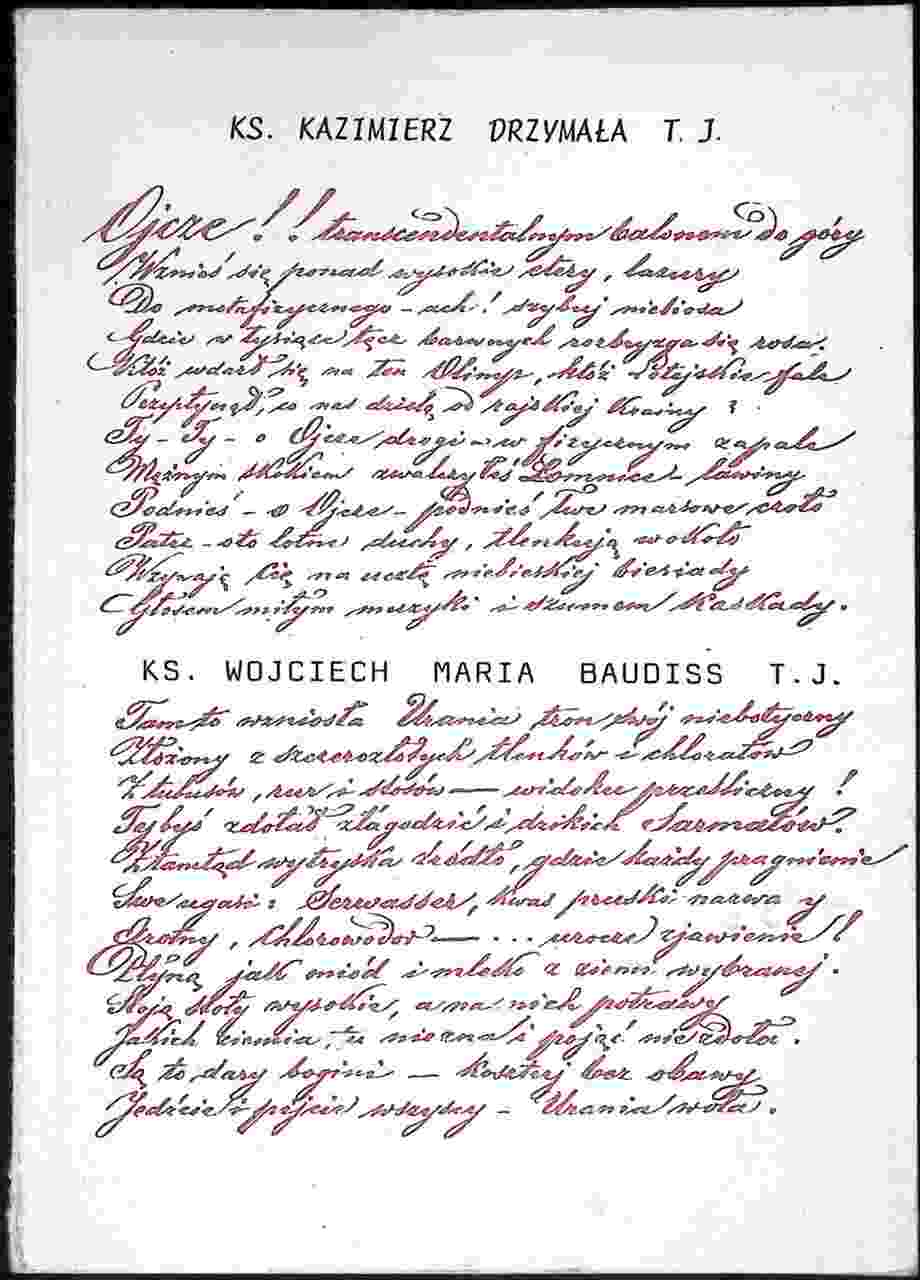 KS. KAZIMIERZ DRZYMAŁA T. J.
Ojcze!! transcendentalnym balonem do góry
Wznieś się ponad wysokie etery, lazury
Do metafizycznego - ach! szybuj niebiosa
Gdzie w tysiące tęcz barwnych rozbryzga się rosa.
Któż wdarł się na ten Olimp, któż Letejskie fale
Przepłynął, co nas dzielą od rajskiej krainy?
Ty - Ty - o Ojcze drogi - w fizycznym zapale
Mężnym skokiem zwalczyłeś Łomnice - lawiny
Podnieś - o Ojcze - podnieś Twe marsowe czoło
Patrz - oto lotne duchy, tlenkują wokoło
Wzywają Cię na ucztę niebieskiej biesiady
Głosem miłym muzyki i szumem kaskady.
KS. WOJCIECH MARIA BAUDISS T. J.
Tam to wzniosła Urania tron swój niebotyczny
Złożony z szczerozłotych tlenków i chloratów
Z tubusów, rur i słojów — widoku prześliczny!
Tybyś zdołał złagodzić i dzikich Sarmatów.
Ztamtąd wytryska źródło, gdzie każdy pragnienie
Swe ugasi: Serwasser, kwas pruski nazwany
Azotny, Chlorowodór — ... urocze zjawienie!
Płyną jak miód i mleko z ziemi wybranej.
Stoją stoły wysokie, a na nich potrawy
Jakich ziemia tu nie zna i pojąć nie zdoła.
Są to dary bogini — kosztuj bez obawy
Jedźcie i pijcie wszyscy - Urania woła.